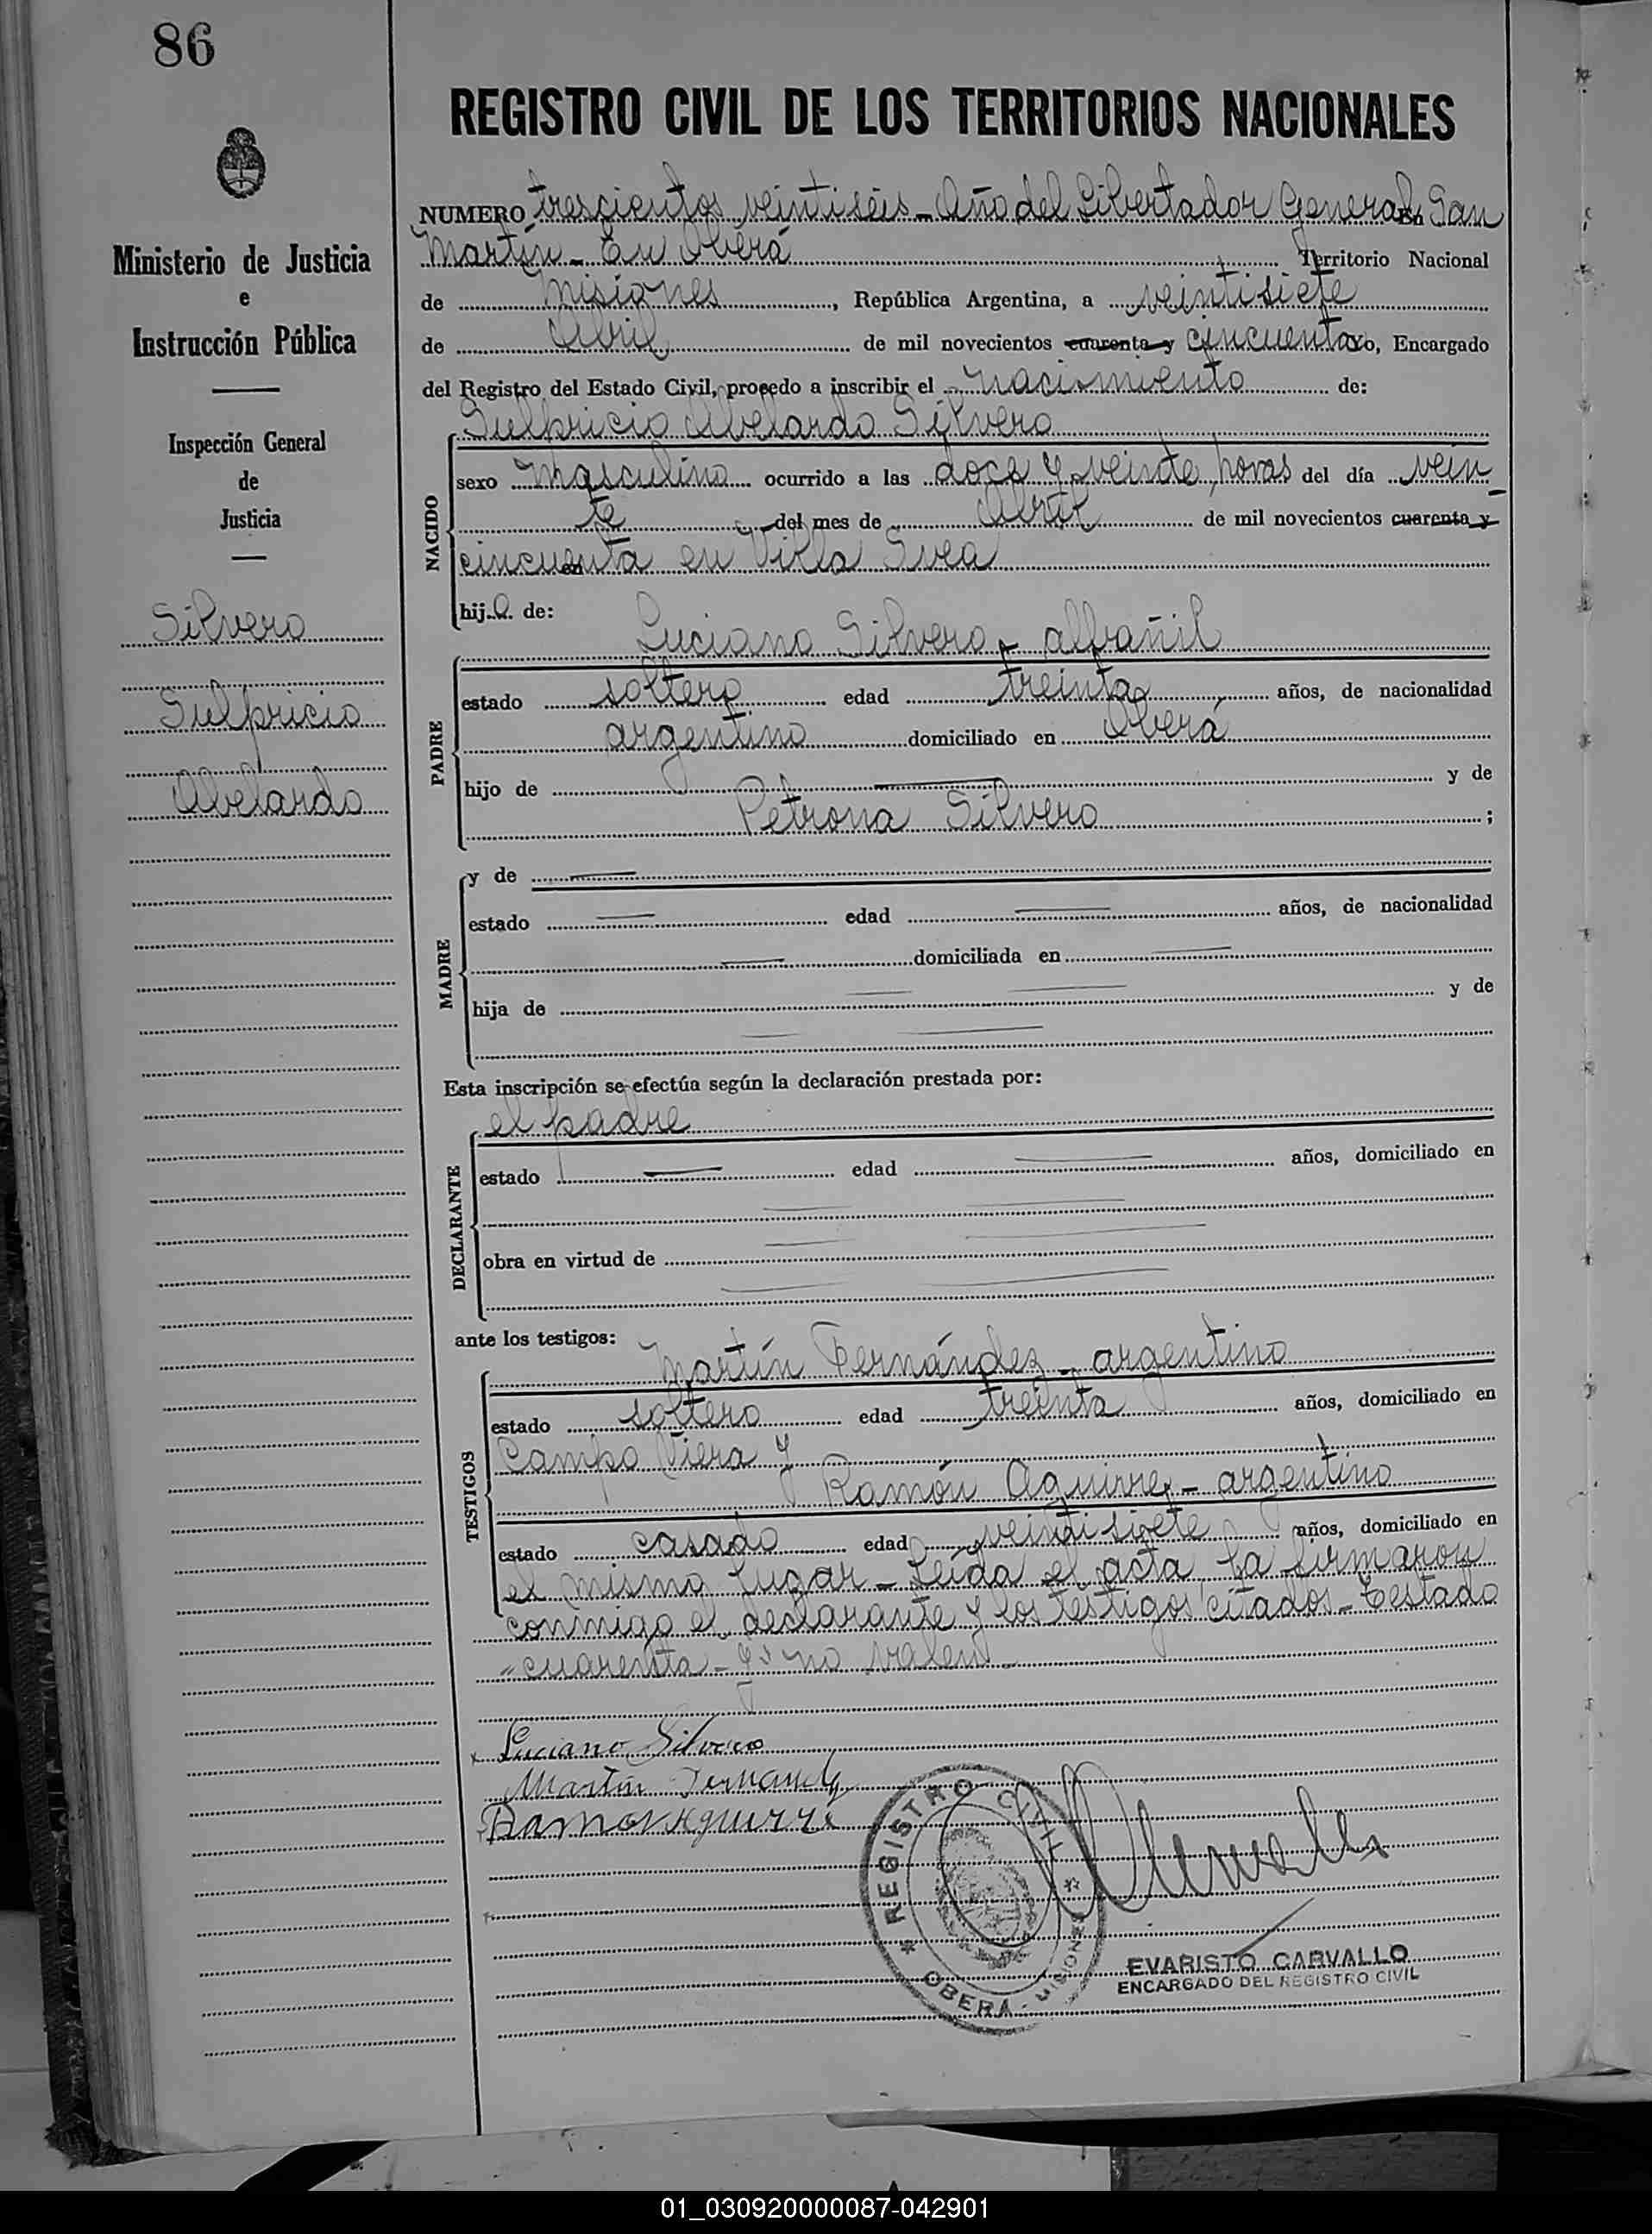 86
REGISTRO CIVIL DE LOS TERRITORIOS NACIONALES
Ministerio de Justicia
e
Instrucción Pública
Inspección General
de
Justicia
Silvero
Sulpricio
Abelardo
NUMERO trescientos veintiséis - Año del Libertador General San
Martín - En Oberá Territorio Nacional
de Misiones, República Argentina, a veintisiete
de Abril de mil novecientos cuarenta y cincuenta yo, Encargado
del Registro del Estado Civil, procedo a inscribir el nacimiento de:
Sulpricio Abelardo Silvero
NACIDO
sexo masculino ocurrido a las doce y veinte horas del día vein
te del mes de Abril de mil novecientos cuarenta y
cincuenta en Villa Svea
hij o de:
PADRE
Luciano Silvero - albañil
estado soltero edad treinta años, de nacionalidad
argentino domiciliado en Oberá
hijo de y de
Petrona Silvero ;
MADRE
y de
estado edad años, de nacionalidad
domiciliada en
hija de y de
Esta inscripción se efectúa según la declaración prestada por:
DECLARANTE
el padre
estado edad años, domiciliado en
obra en virtud de
ante los testigos:
TESTIGOS
Martín Fernández - argentino
estado soltero edad treinta años, domiciliado en
Campo Viera y
Ramón Aguirre - argentino
estado casado edad veintisiete años, domiciliado en
el mismo lugar - Leída el acta la firmaron
conmigo el declarante y los testigos citados - Testado
"cuarenta - y" no valen -
Luciano Silvero
Martin Fernandez
Ramon Aguirre
REGISTRO CIVIL
OBERÁ - MISIONES
EVARISTO CARVALLO
ENCARGADO DEL REGISTRO CIVIL
01_030920000087-042901